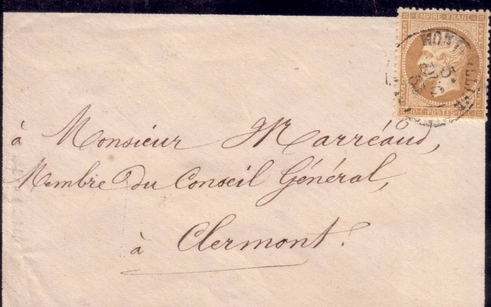 EMPIRE FRANC
MONTPELLIER
POSTES
à Monsieur Marréaud,
Membre du Conseil Général,
à Clermont.